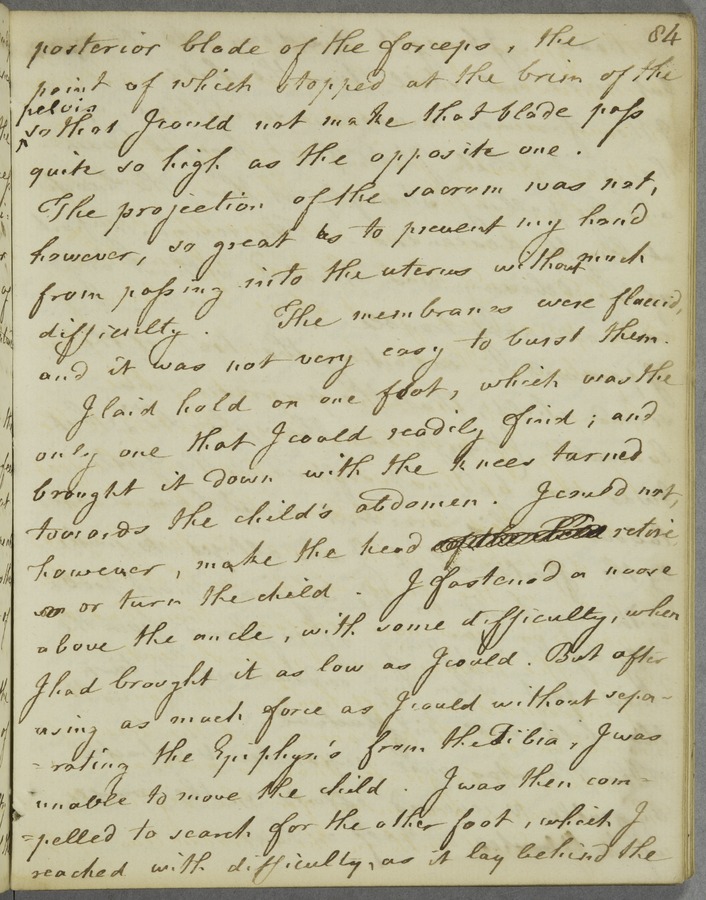 84
posterior blade of the forceps, the
point of which stopped at the brim of the
pelvis
so that I could not make that blade pass
quite so high as the opposite one.
The projection of the sacrum was not,
however, so great as to prevent my hand
from passing into the uterus without much
difficulty. The membranes were flaccid,
and it was not very easy to burst them.
I laid hold on one foot, which was the
only one that I could readily find; and
brought it down with the knees turned
towards the child's abdomen. I could not,
however, make the head retire
or turn the child. I fastened a noose
above the ancle, with some difficulty, when
I had brought it as low as I could. But after
using as much force as I could without sepa-
-rating the Epiphysis from the Tibia, I was
unable to move the child. I was then com-
-pelled to search for the other foot, which I
reached with difficulty, as it lay behind the